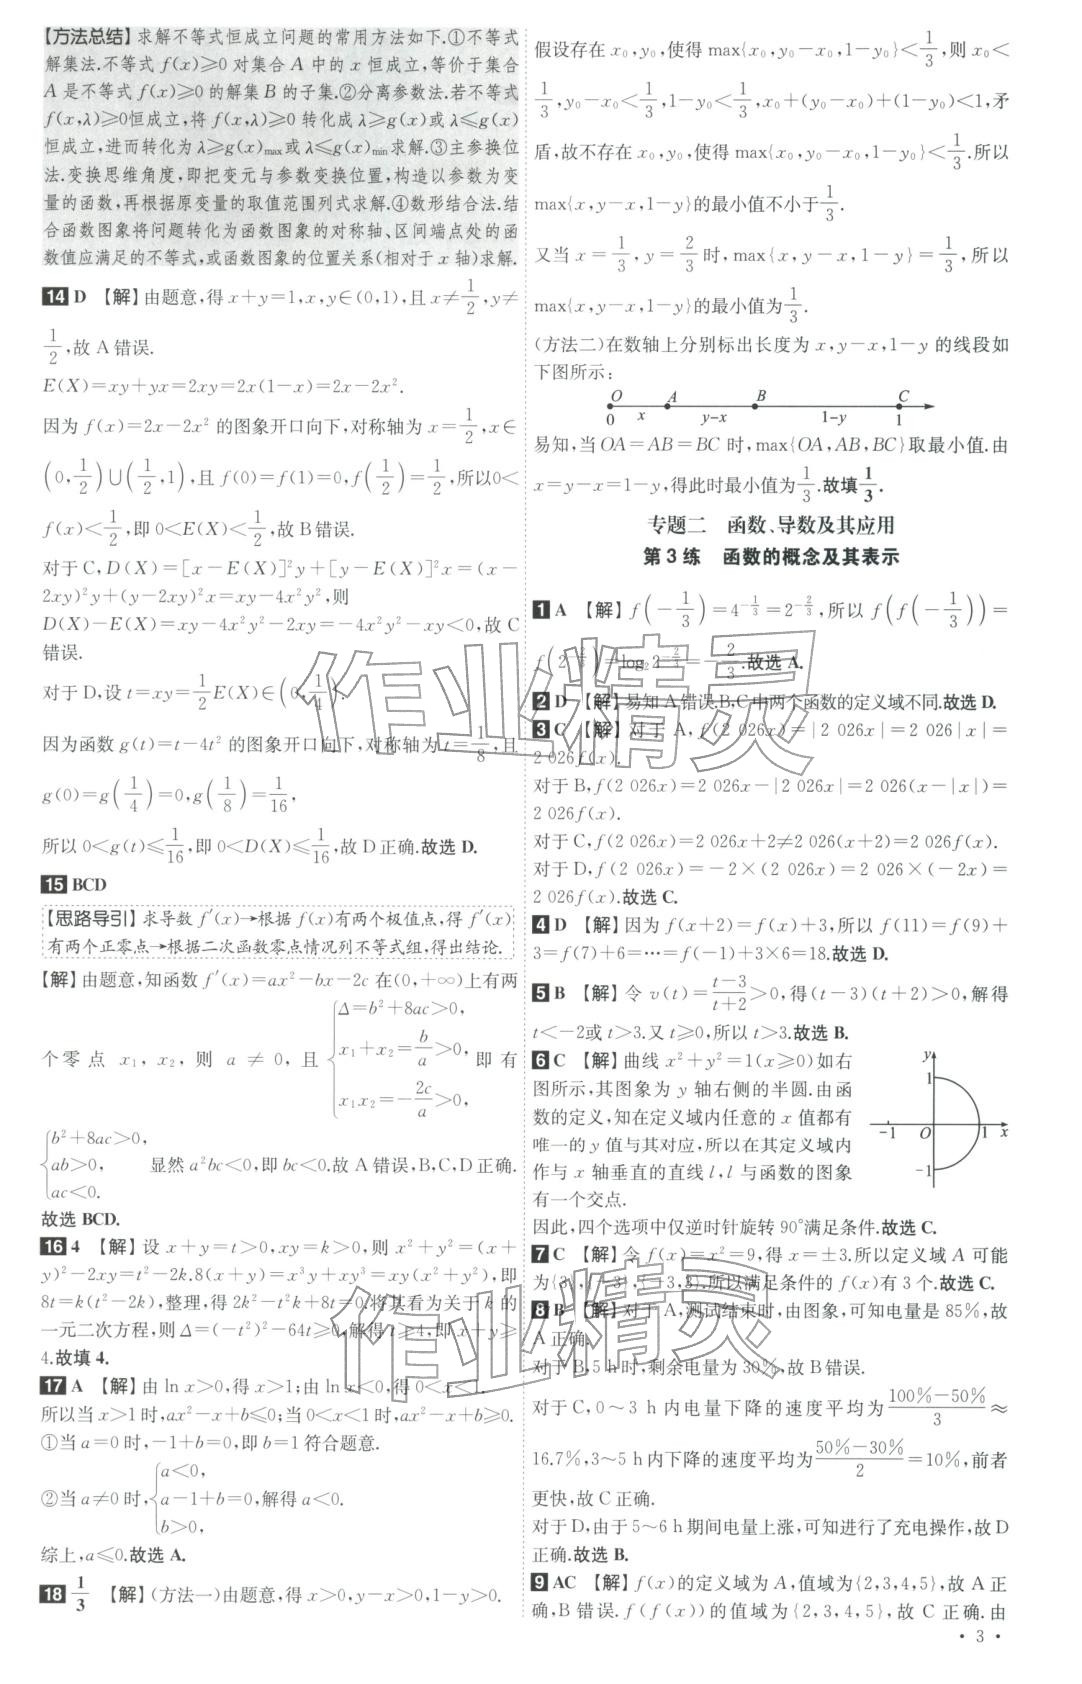 【方法总结】求解不等式恒成立问题的常用方法如下.①不等式
解集法.不等式 f(x)≥0 对集合 A 中的 x 恒成立,等价于集合
A 是不等式 f(x)≥0 的解集 B 的子集.②分离参数法.若不等式
f(x,λ)≥0恒成立,将 f(x,λ)≥0 转化成 λ≥g(x)或 λ≤g(x)
恒成立,进而转化为 λ≥g(x)max或 λ≤g(x)min求解.③主参换位
法.变换思维角度,即把变元与参数变换位置,构造以参数为变
量的函数,再根据原变量的取值范围列式求解.④数形结合法.结
合函数图象将问题转化为函数图象的对称轴、区间端点处的函
数值应满足的不等式,或函数图象的位置关系(相对于 x 轴)求解.
14 D 【解】由题意,得 x+y=1,x,y∈(0,1),且 x≠1/2,y≠
1/2,故 A 错误.
E(X)=xy+yx=2xy=2x(1-x)=2x-2x².
因为 f(x)=2x-2x² 的图象开口向下,对称轴为 x=1/2,x∈
(0,1/2)∪(1/2,1),且 f(0)=f(1)=0,f(1/2)=1/2,所以0<
f(x)<1/2,即 0<E(X)<1/2,故 B 错误.
对于 C,D(X)=[x-E(X)]²y+[y-E(X)]²x=(x-
2xy)²y+(y-2xy)²x=xy-4x²y²,则
D(X)-E(X)=xy-4x²y²-2xy=-4x²y²-xy<0,故 C
错误.
对于 D,设 t=xy=1/2E(X)∈(0,1/4).
因为函数 g(t)=t-4t² 的图象开口向下,对称轴为 t=1/8,且
g(0)=g(1/4)=0,g(1/8)=1/16,
所以 0<g(t)≤1/16,即 0<D(X)≤1/16,故 D 正确.故选 D.
15 BCD
【思路导引】求导数 f′(x)→根据 f(x)有两个极值点,得 f′(x)
有两个正零点→根据二次函数零点情况列不等式组,得出结论.
【解】由题意,知函数 f′(x)=ax²-bx-2c 在(0,+∞)上有两
个零点 x₁,x₂,则 a≠0,且 {Δ=b²+8ac>0, x₁+x₂=b/a>0, x₁x₂=-2c/a>0, 即有
{b²+8ac>0, ab>0, ac<0. 显然 a²bc<0,即 bc<0.故 A 错误,B,C,D 正确.
故选 BCD.
16 4 【解】设 x+y=t>0,xy=k>0,则 x²+y²=(x+
y)²-2xy=t²-2k.8(x+y)=x³y+xy³=xy(x²+y²),即
8t=k(t²-2k),整理,得 2k²-t²k+8t=0.将其看为关于 k 的
一元二次方程,则 Δ=(-t²)²-64t≥0,解得 t≥4,即 x+y≥
4.故填 4.
17 A 【解】由 ln x>0,得 x>1;由 ln x<0,得 0<x<1.
所以当 x>1 时,ax²-x+b≤0;当 0<x<1时,ax²-x+b≥0.
①当 a=0 时,-1+b=0,即 b=1 符合题意.
②当 a≠0 时,{a<0, a-1+b=0, b>0, 解得 a<0.
综上,a≤0.故选 A.
18 1/3 【解】(方法一)由题意,得 x>0,y-x>0,1-y>0.
假设存在 x₀,y₀,使得 max{x₀,y₀-x₀,1-y₀}<1/3,则 x₀<
1/3,y₀-x₀<1/3,1-y₀<1/3,x₀+(y₀-x₀)+(1-y₀)<1,矛
盾,故不存在 x₀,y₀,使得 max{x₀,y₀-x₀,1-y₀}<1/3.所以
max{x,y-x,1-y}的最小值不小于1/3.
又当 x=1/3,y=2/3时,max{x,y-x,1-y}=1/3,所以
max{x,y-x,1-y}的最小值为1/3.
(方法二)在数轴上分别标出长度为 x,y-x,1-y 的线段如
下图所示:
O A B C
0 x y-x 1-y 1
易知,当 OA=AB=BC 时,max{OA,AB,BC}取最小值.由
x=y-x=1-y,得此时最小值为1/3.故填1/3.
专题二 函数、导数及其应用
第 3 练 函数的概念及其表示
1 A 【解】f(-1/3)=4^(-1/3)=2^(-2/3),所以 f(f(-1/3))=
f(2^(-2/3))=log₂2^(-2/3)=-2/3.故选 A.
2 D 【解】易知 A 错误.B,C 中两个函数的定义域不同.故选 D.
3 C 【解】对于 A,f(2 026x)=|2 026x|=2 026|x|=
2 026f(x).
对于 B,f(2 026x)=2 026x-|2 026x|=2 026(x-|x|)=
2 026f(x).
对于 C,f(2 026x)=2 026x+2≠2 026(x+2)=2 026f(x).
对于 D,f(2 026x)=-2×(2 026x)=2 026×(-2x)=
2 026f(x).故选 C.
4 D 【解】因为 f(x+2)=f(x)+3,所以 f(11)=f(9)+
3=f(7)+6=…=f(-1)+3×6=18.故选 D.
5 B 【解】令 v(t)=(t-3)/(t+2)>0,得(t-3)(t+2)>0,解得
t<-2或 t>3.又 t≥0,所以 t>3.故选 B.
6 C 【解】曲线 x²+y²=1(x≥0)如右
图所示,其图象为 y 轴右侧的半圆.由函
数的定义,知在定义域内任意的 x 值都有
唯一的 y 值与其对应,所以在其定义域内
作与 x 轴垂直的直线 l,l 与函数的图象
有一个交点.
y
1
-1 O 1 x
-1
因此,四个选项中仅逆时针旋转 90°满足条件.故选 C.
7 C 【解】令 f(x)=x²=9,得 x=±3.所以定义域 A 可能
为{3},{-3},{-3,3}.所以满足条件的 f(x)有 3 个.故选 C.
8 B 【解】对于 A,测试结束时,由图象,可知电量是 85%,故
A 正确.
对于 B,5 h 时,剩余电量为 30%,故 B 错误.
对于 C,0～3 h 内电量下降的速度平均为(100%-50%)/3≈
16.7%,3～5 h 内下降的速度平均为(50%-30%)/2=10%,前者
更快,故 C 正确.
对于 D,由于 5～6 h 期间电量上涨,可知进行了充电操作,故 D
正确.故选 B.
9 AC 【解】f(x)的定义域为 A,值域为{2,3,4,5},故 A 正
确,B 错误.f(f(x))的值域为{2,3,4,5},故 C 正确.由
· 3 ·
作业精灵
作业精灵